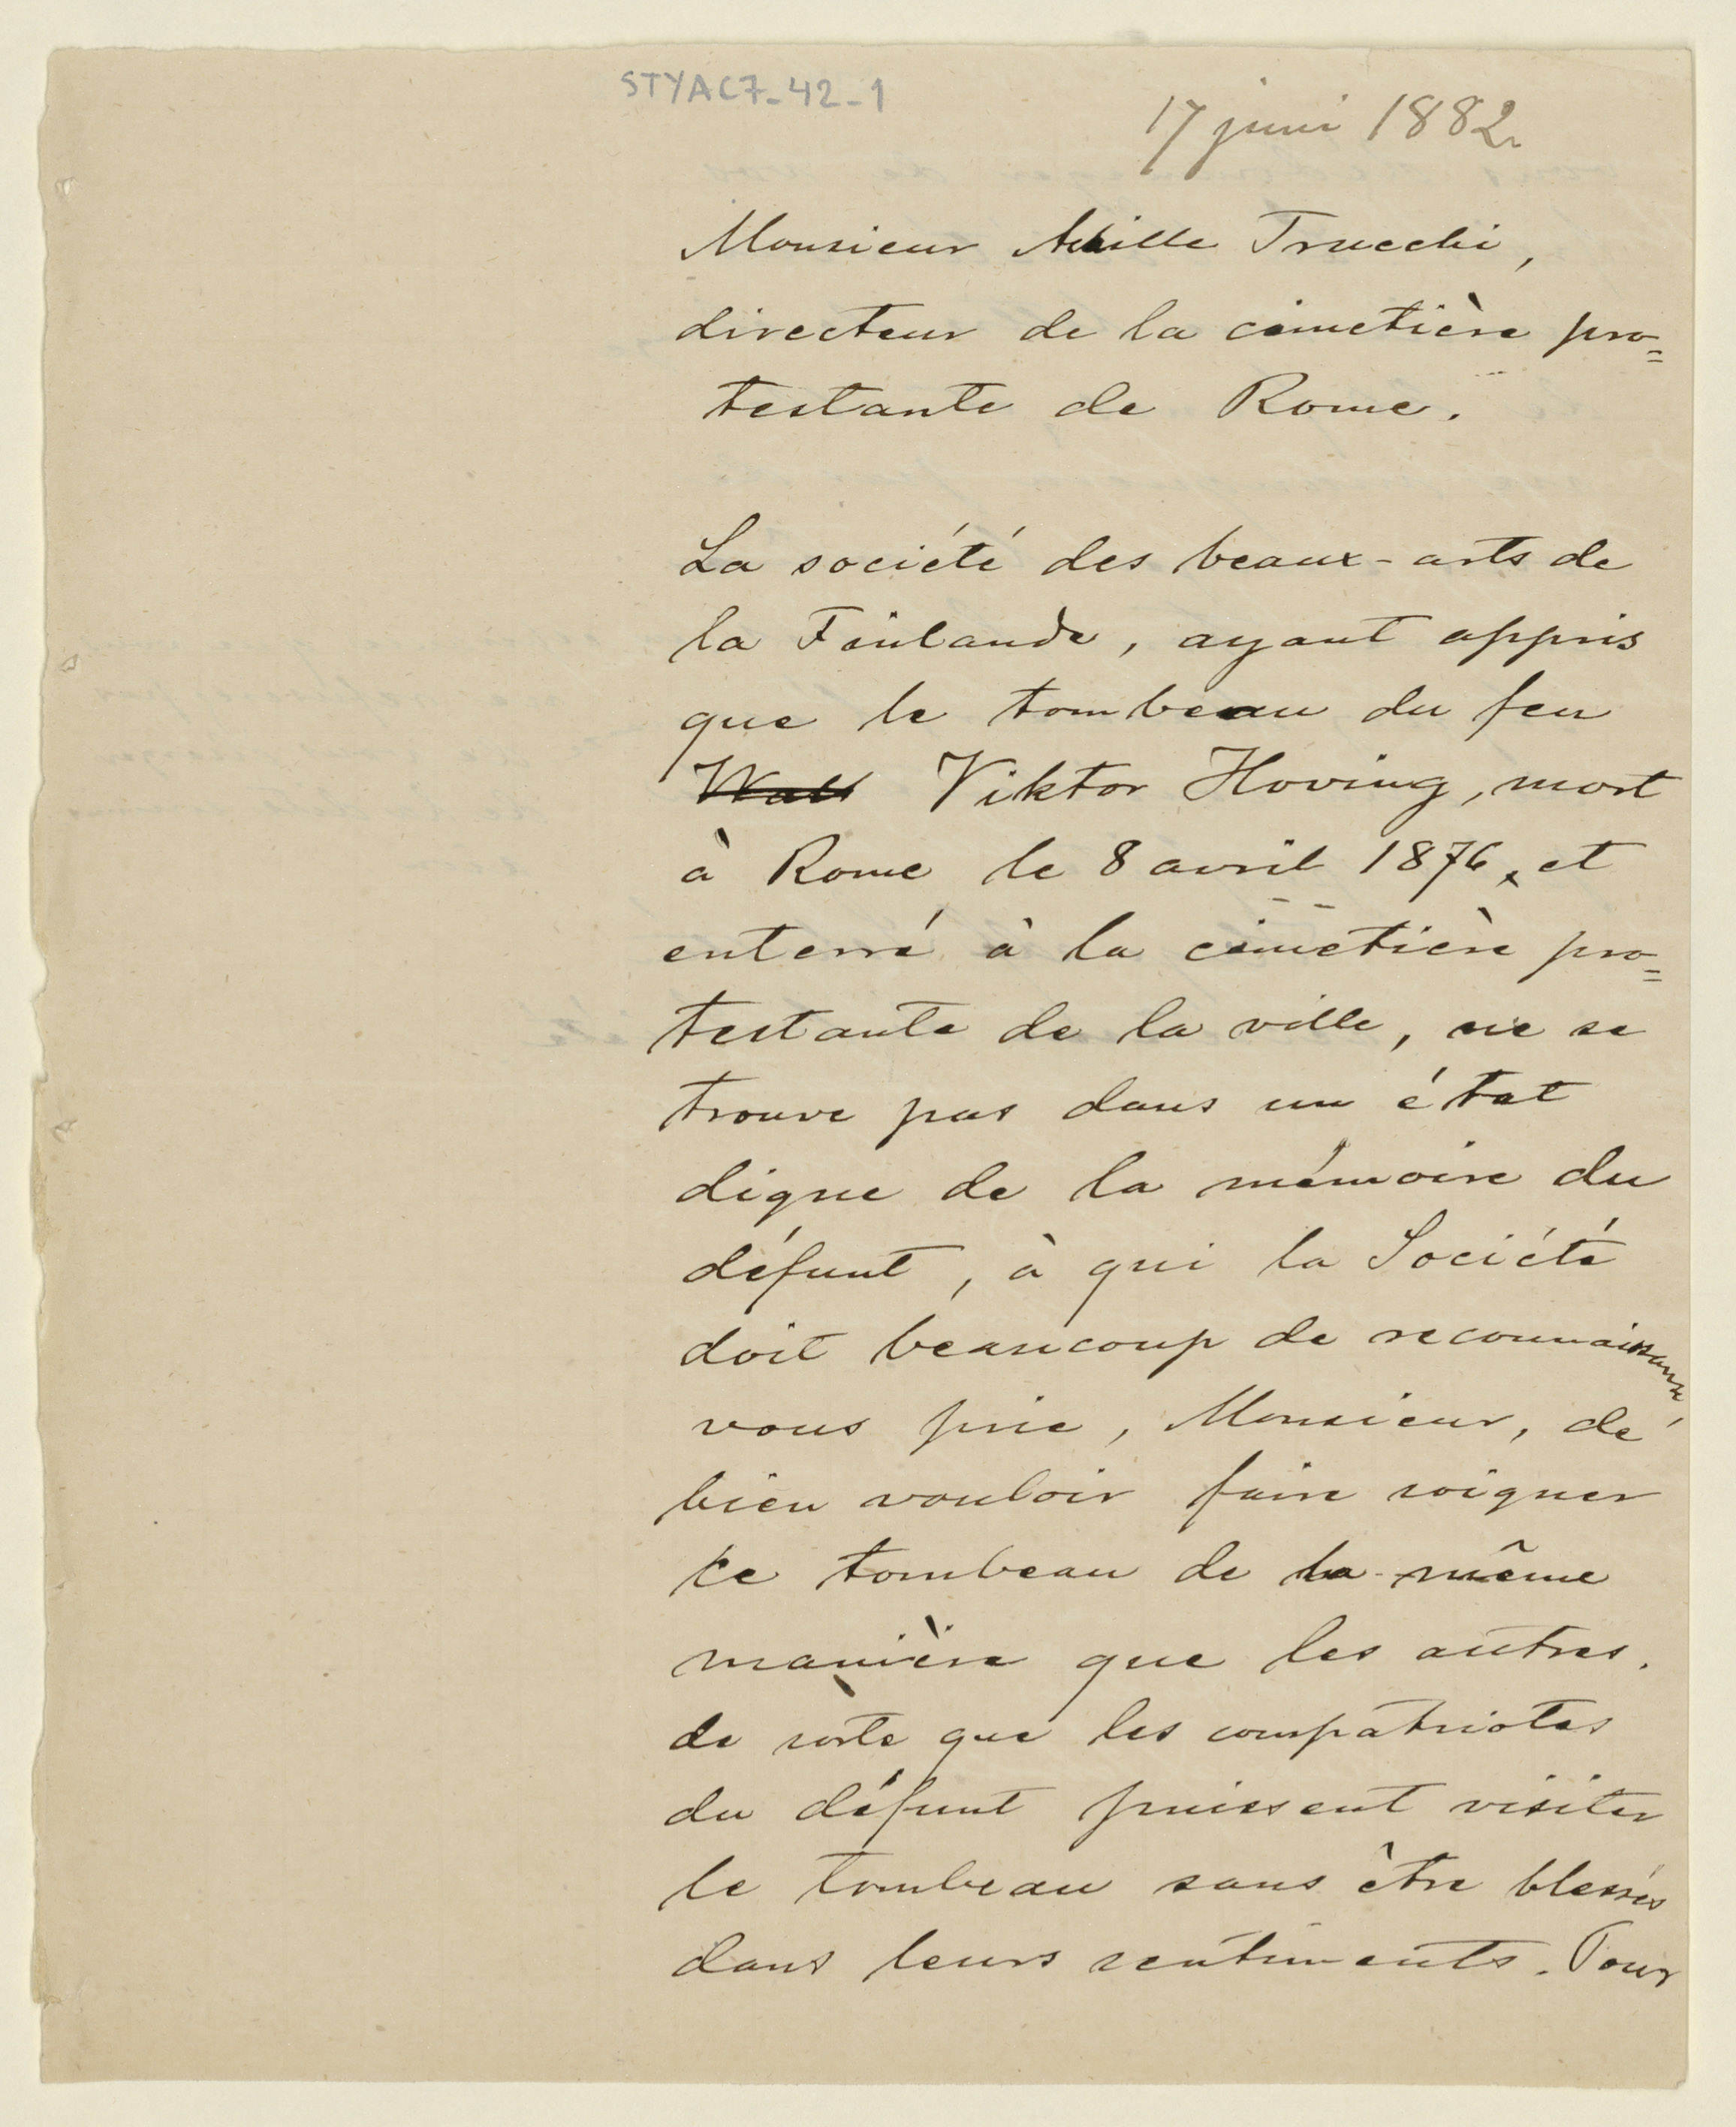 STYAC7-42-1
17 juni 1882.
Monsieur Achille Trucchi,
directeur de la cimetière pro=
testante de Rome.
La société des beaux-arts de
la Finlande, ayant appris
que le tombeau du feu
Viktor Hoving, mort
à Rome le 8 avril 1876, et
enterré à la cimetière pro=
testante de la ville, ne se
trouve pas dans un état
digne de la mémoire du
défunt, à qui la Société
doit beaucoup de reconnaissance
vous prie, Monsieur, de
bien vouloir faire soigner
ce tombeau de la même
manière que les autres,
de sorte que les compatriotes
du défunt puissent visiter
le tombeau sans être blessés
dans leurs sentiments. Pour